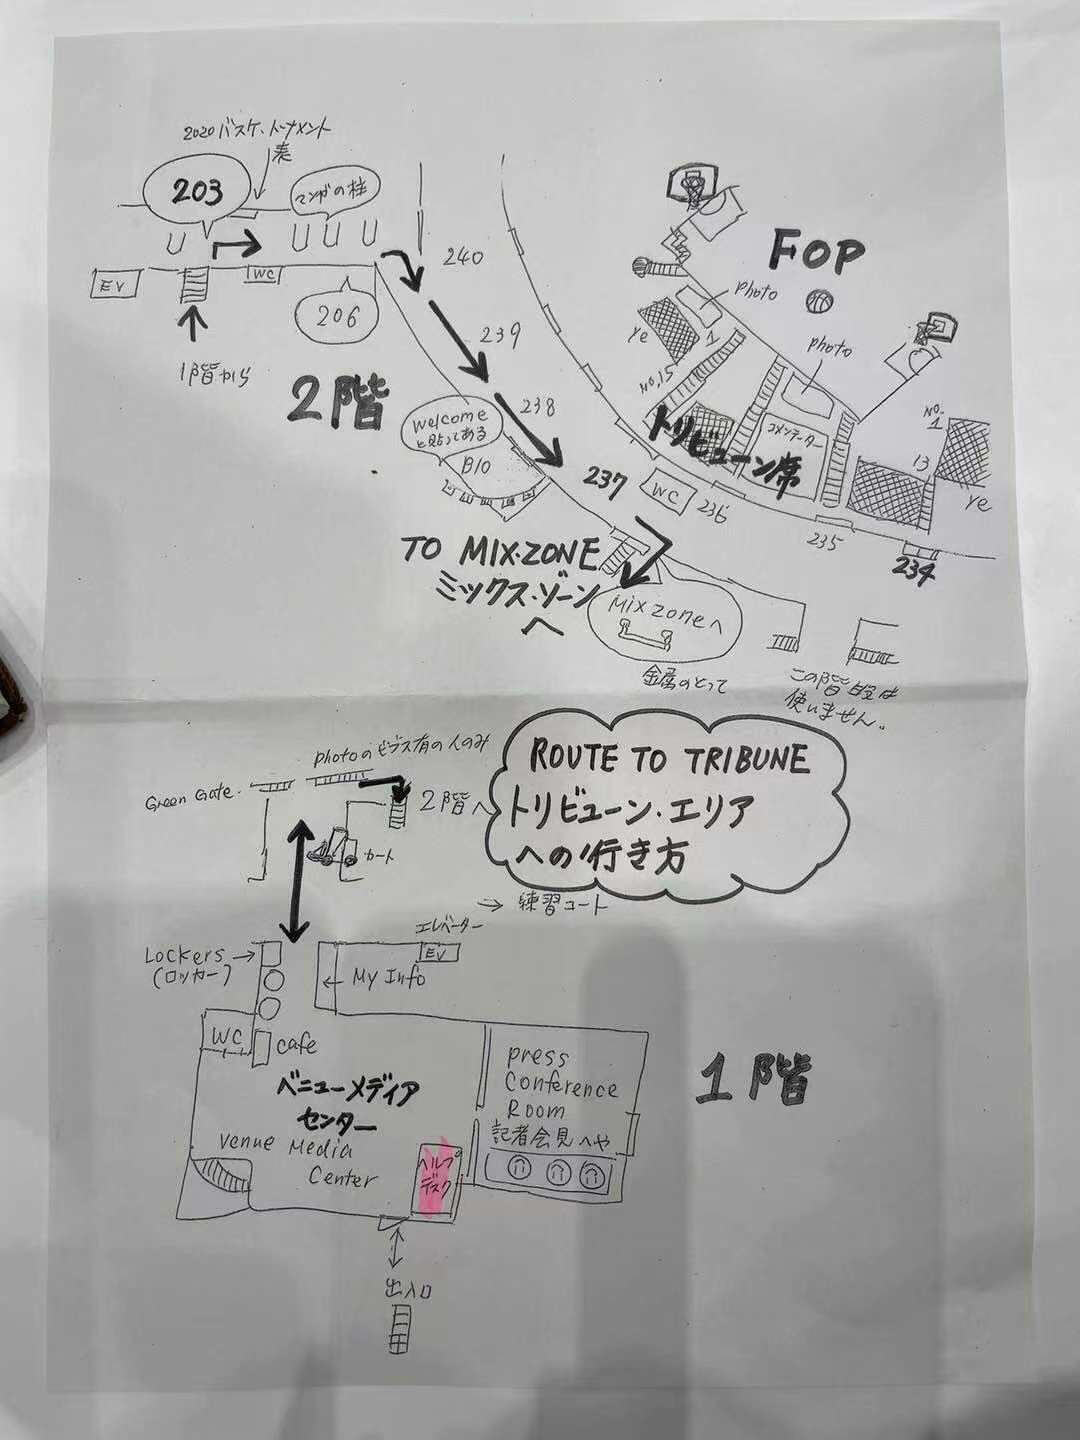 2020 バスケ.トーナメント
表
203
マンガの柱
EV
WC
206
1階から
2階
240
239
238
237
236
235
234
Welcome
と貼ってある
B10
WC
FOP
photo
photo
ye
1
No.15
トリビューン席
コメンテーター
No.
1
13
ye
TO MIX.ZONE
ミックス.ゾーン
へ
Mix zoneへ
金属のとって
この階段は
使いません。
photoのビブス有の人のみ
Green Gate.
2階へ
カート
ROUTE TO TRIBUNE
トリビューン.エリア
への行き方
→ 練習コート
エレベーター
EV
Lockers →
(ロッカー)
← My Info
WC
cafe
ベニューメディア
センター
Venue Media
Center
ヘルプ
デスク
press
Conference
Room
記者会見へや
1階
出入口